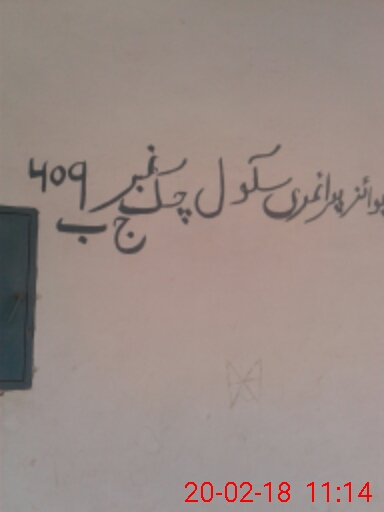 بوائز پرائمری سکول چک نمبر 409
ج ب
20-02-18 11:14